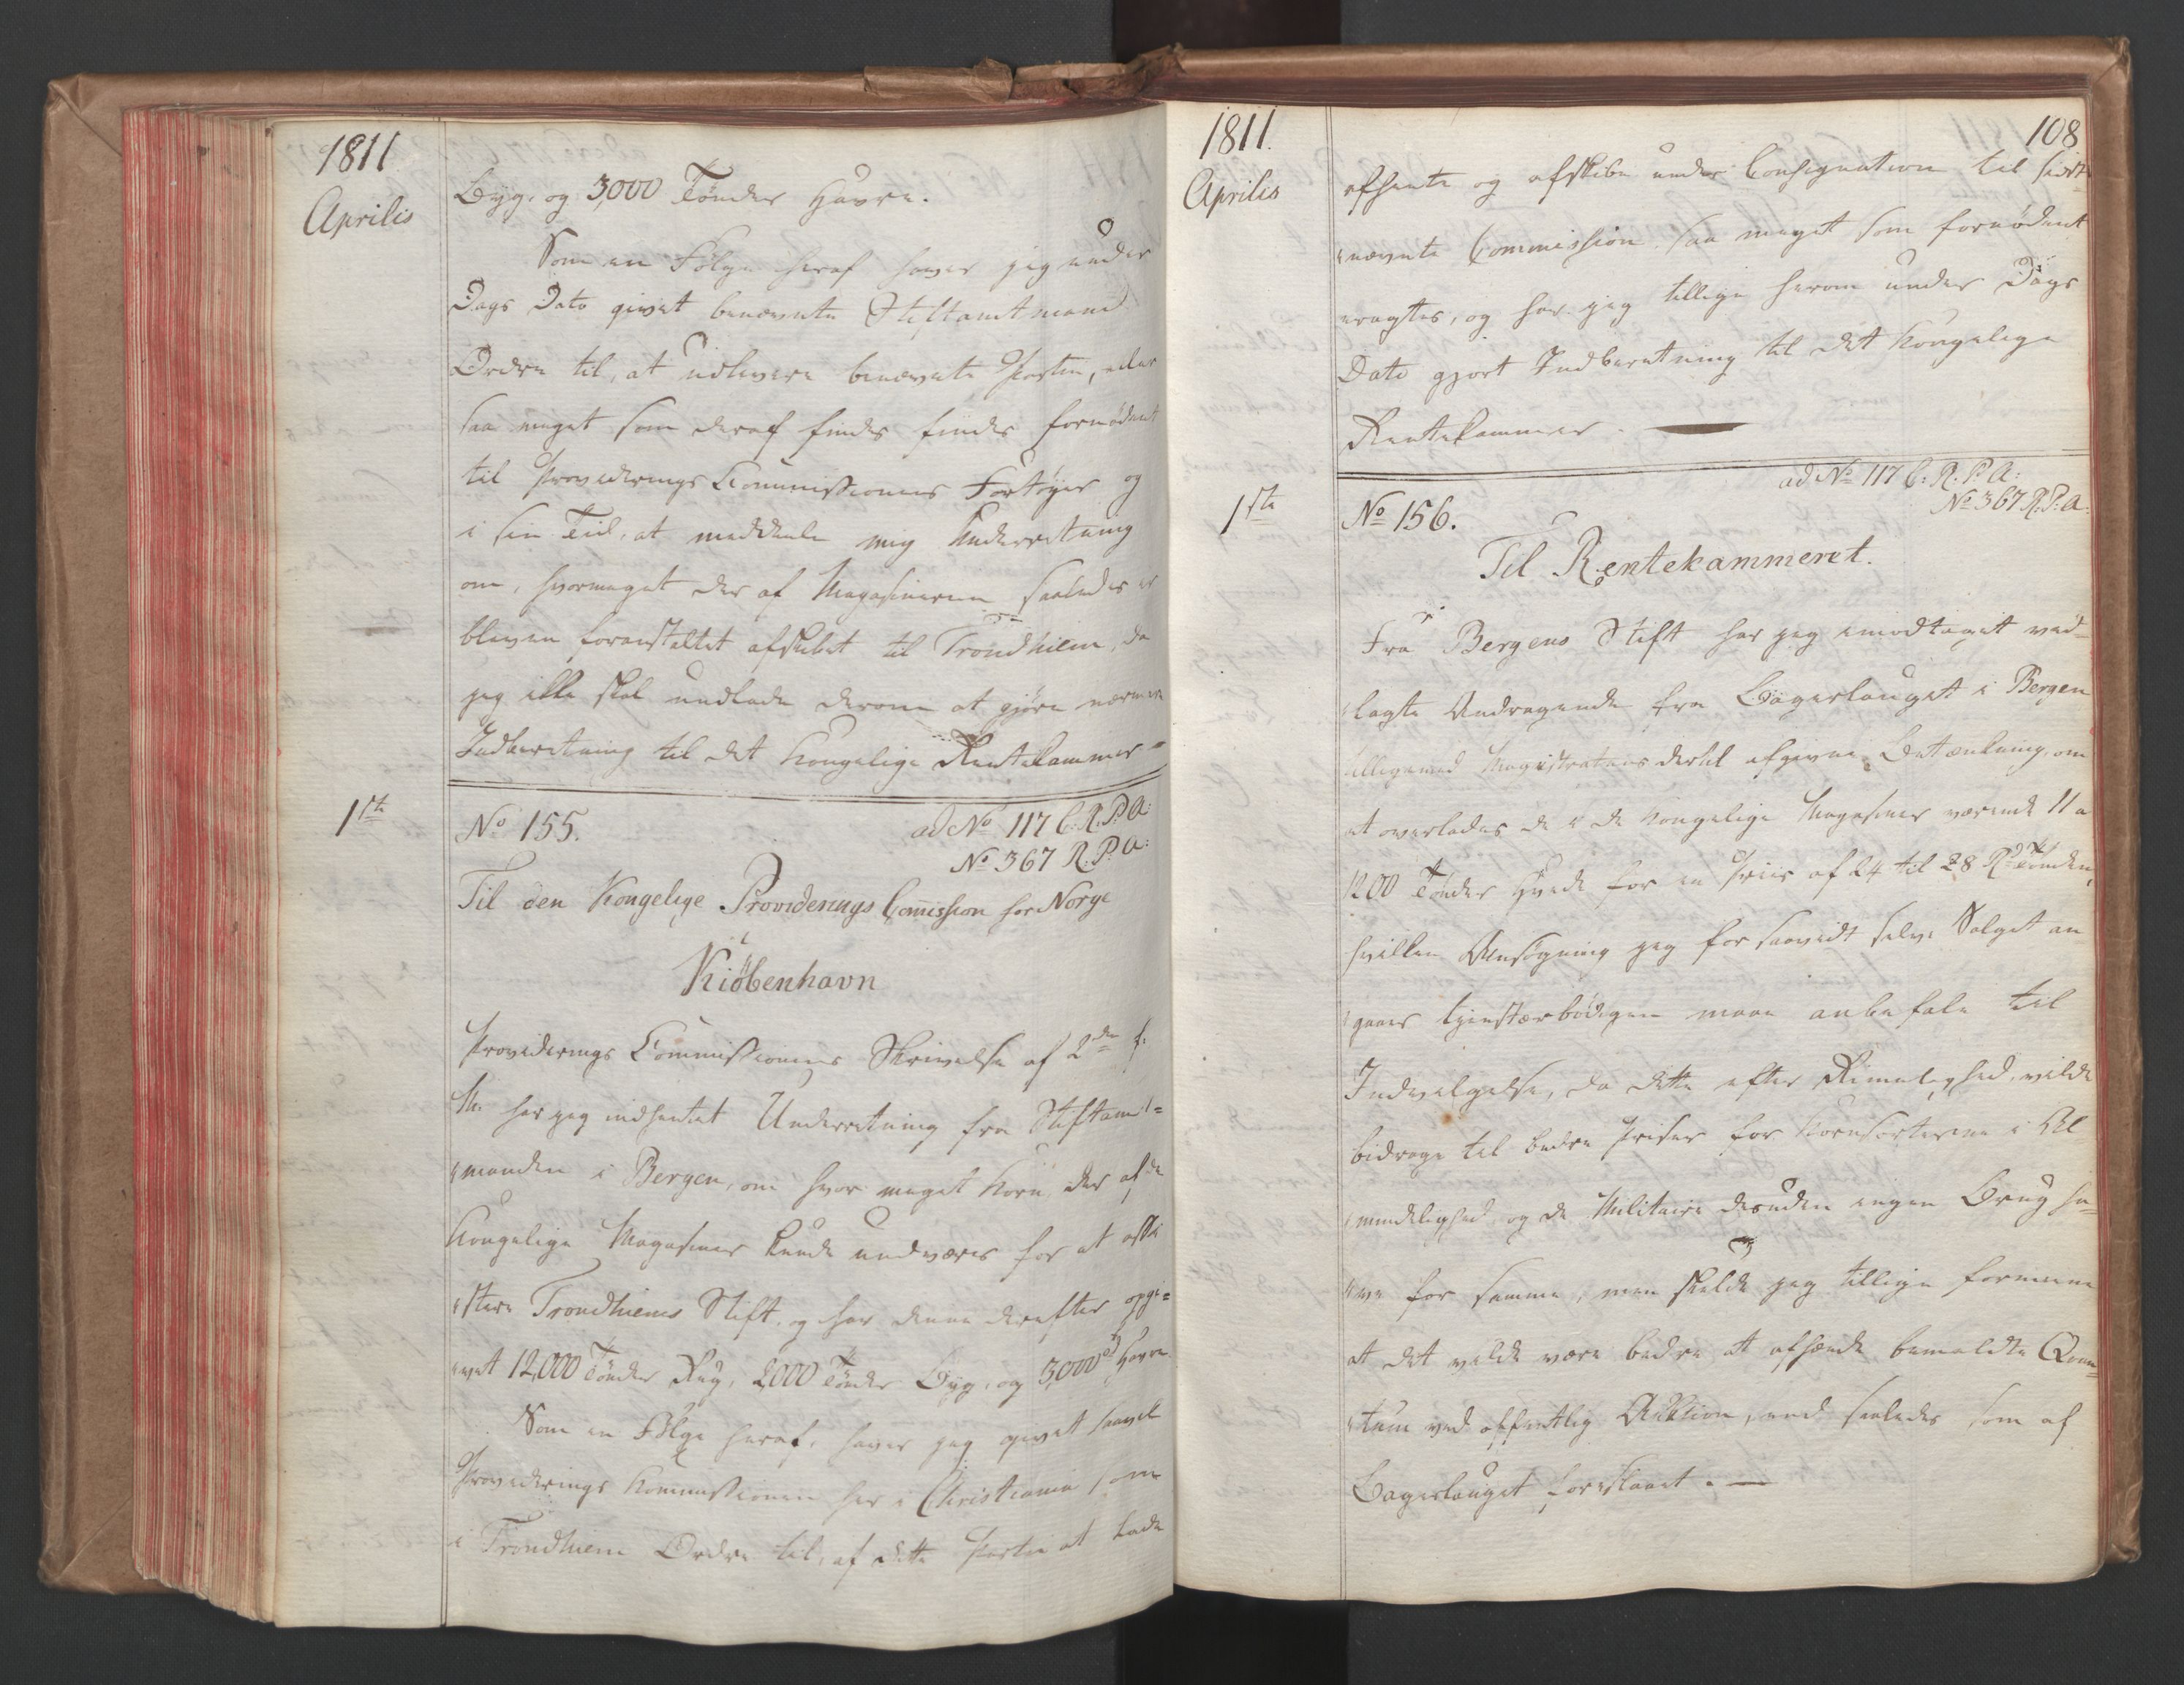 1811.
Aprilis
Byg, og 3,000 Tønder Havre.
Som en Følge heraf haver jeg under
Dags Dato givet benævnte Stiftamtmand
Ordre til, at udlevere benævnte Partie, eller
saa meget som deraf findes findes fornødent
til Providerings Commissionens Fartøyer og
i sin Tid, at meddeele mig Underretning
om, hvormeget der af Magasinerne saaledes er
bleven foranstaltet afskibet til Trondhiem, da
jeg ikke skal undlade derom at gjøre nærmere
Indberetning til det Kongelige Rentekammer
1ste
No 155.
ad No 117 C. R. P. A:
No 367 R. P. A:
Til den Kongelige Providerings Comission for Norge
Kiöbenhavn
Providerings Commissionens Skrivelse af 2den f.
M. har jeg indhentet Underretning fra Stiftamt=
manden i Bergen, om hvor meget Korn, der af de
Kongelige Magasiner kunde undværes for at assi
stere Trondhiems Stift, og har denne derefter opgi=
vet 12,000 Tønder Rug, 2,000 Tønder Byg, og 3,000 d Havre.
Som en Følge heraf, haver jeg givet saavel
Providerings Kommissionen her i Christiania som
i Trondhiem Ordre til, af dette Partie at lade
1811.
108
Aprilis
afhente og afskibe under Consignation til sidst
nævnte Commission saa meget som fornødent
eragtes, og har jeg tillige herom under Dags
Dato gjort Indberetning til det Kongelige
Rentekammer.
1ste
No 156.
ad No 117 C. R. P. A:
No 367 R. P. A:
Til Rentekammeret.
Fra Bergens Stift har jeg imodtaget ved=
lagte Andragende fra Bagerlauget i Bergen
tilligemed Magistratens dertil afgivne Betænkning, om
at overlades de i de Kongelige Magasiner værende 11 a
1200 Tønder Hvede for en Priis af 24 til 28 Rd Tønden,
hvilken Ansøgning jeg forsaavidt selve Salget an
gaaer tjenstærbødigen maae anbefale til
Indvilgelse, da dette efter Rimelighed, vilde
bidrage til bedre Priser for Kornsorterne i Al
mindelighed, og de Militaire desuden ingen Brug ha=
ve for samme, men skulde jeg tillige formeene
at det vilde være bedre at afhænde bemeldte Qvan=
tum ved offentlig Auktion, end saaledes som af
Bagerlauget foreslaaet. —